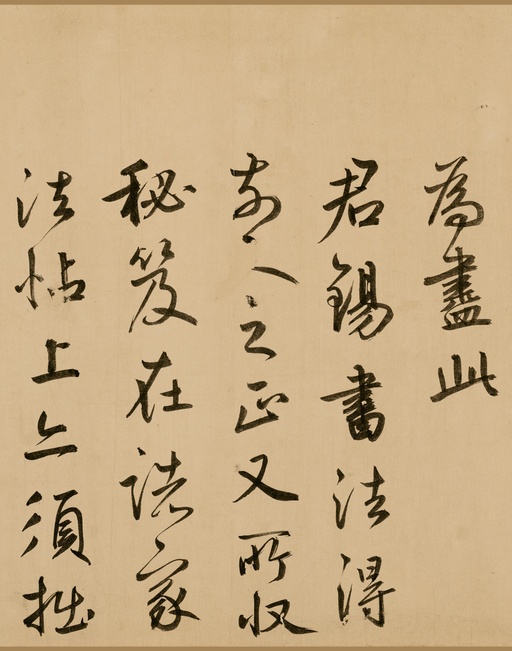 為盡此
君錫書法得
前人之正又所收
秘笈在諸家
法帖上亦須拙